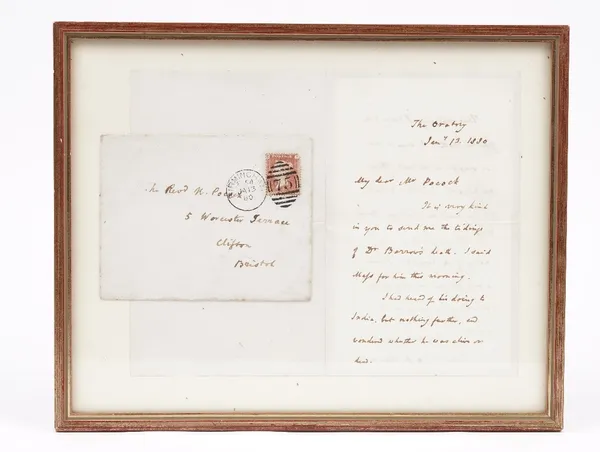 The Rev.d N. Pocock
5 Worcester Terrace
Clifton
Bristol
BIRMINGHAM
JA 13
80
75
The Oratory
Jan.y 13. 1880
My dear Mr Pocock
It is very kind
in you to send me the tidings
of Dr Barrow's death. I said
Mass for him this morning.
I had heard of his going to
India, but nothing further, and
wondered whether he was alive or
dead.